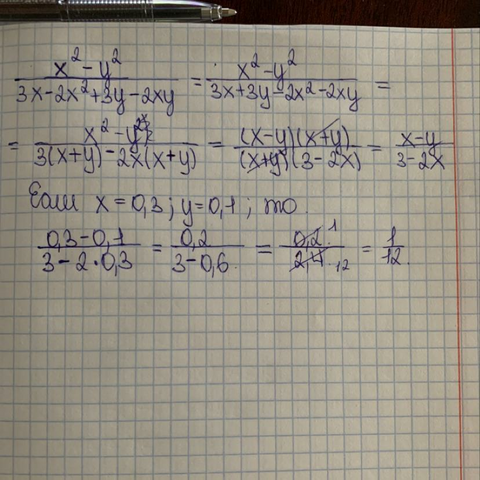 x² - y² / 3x - 2x² + 3y - 2xy = x² - y² / 3x + 3y - 2x² - 2xy =
= x² - y² / 3(x+y) - 2x(x+y) = (x-y)(x+y) / (x+y)(3-2x) = x-y / 3-2x
Если x = 0,3; y = 0,1, то
0,3 - 0,1 / 3 - 2·0,3 = 0,2 / 3 - 0,6 = 0,2 1 / 2,4 12 = 1 / 12.